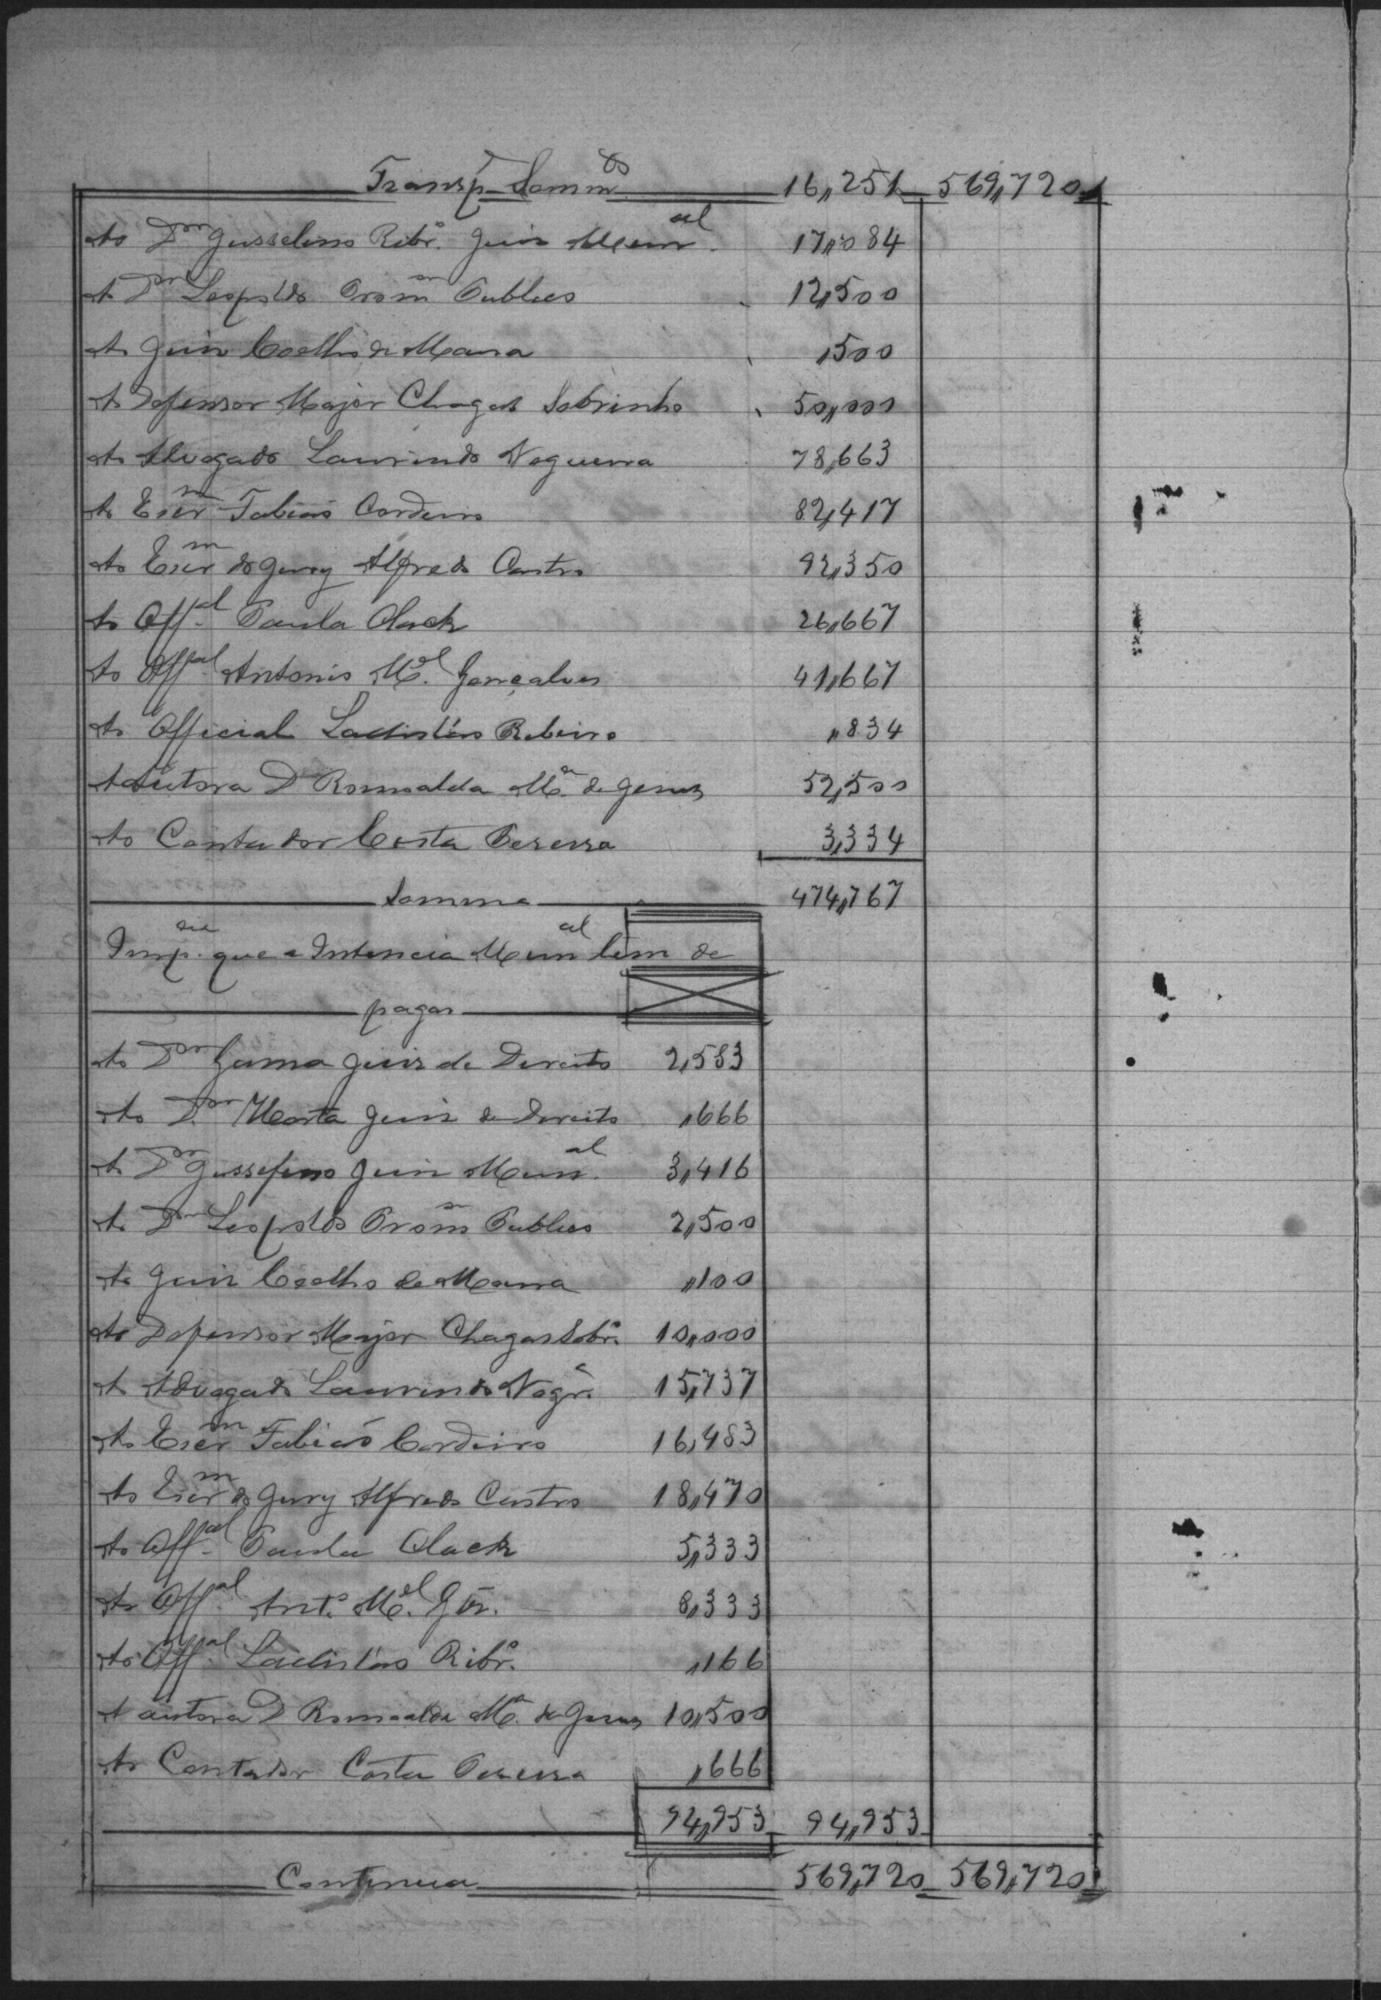 Transp.te Somm.do 16,251 569,720
Ao Dor Jusselino Ribr.o Juiz Mun.al 17,084
Ao Dor Leopoldo Prom.or Publico 12,500
Ao Juiz Coelho de Moura ,500
Ao Defensor Major Chagas Sobrinho 50,000
Ao Advogado Laurindo Nogueira 78,663
Ao Escr.m Fabião Cordeiro 82,417
Ao Escr.m do Jury Alfredo Castro 92,350
Ao Off.al Paula Clack 26,667
Ao Off.al Antonio M.el Gonçalves 41,667
Ao Official Ladisláo Ribeiro ,834
A Autora D Romoalda M.a de Jesus 52,500
Ao Contador Costa Pereira 3,334
Somma 474,767
Imp.cia que a Intencia Mun.al tem de
pagar
Ao Dor Gama Juiz de Direito 2,583
Ao Dor Motta Juiz de Direito ,666
Ao Dor Jusselino Juiz Mun.al 3,416
Ao Dor Leopoldo Prom.or Publico 2,500
Ao Juiz Coelho de Moura ,100
Ao Defensor Major Chagas Sobr.o 10,000
Ao Advogado Laurindo Nogr.a 15,737
Ao Escr.m Fabião Cordeiro 16,483
Ao Escr.m do Jury Alfredo Castro 18,470
Ao Off.al Paula Clack 5,333
Ao Off.al Ant.o M.el Gõr. 8,333
Ao Off.al Ladisláo Ribr.o ,166
A autora D Romoalda M.a de Jesus 10,500
Ao Contador Costa Pereira ,666
94,953 94,953
Continua 569,720 569,720